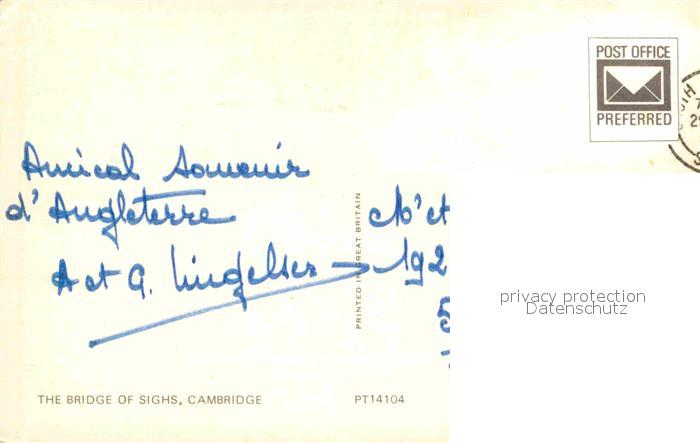 POST OFFICE
PREFERRED
Amical souvenir
d'Angleterre
A et G.
PRINTED IN GREAT BRITAIN
192
5
privacy protection
Datenschutz
THE BRIDGE OF SIGHS, CAMBRIDGE
PT14104